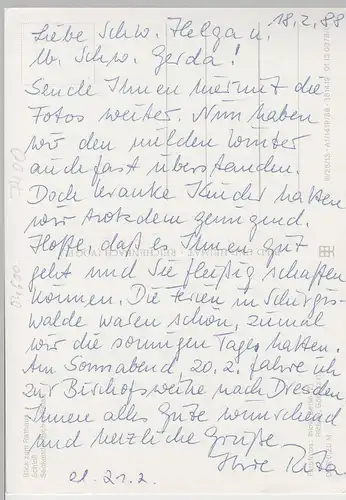 18.2.88
Liebe Schw. Helga u.
lb. Schw. Gerda!
Sende Ihnen hiermit die
Fotos weiter. Nun haben
wir den milden Winter
auch fast überstanden.
Doch kranke Kinder hatten
wir trotzdem genügend.
Hoffe, daß es Ihnen gut
geht und Sie fleißig schaffen
können. Die Ferien in Schirgis-
walde waren schön, zumal
wir die sonnigen Tage hatten.
Am Sonnabend, 20.2. fahre ich
zur Bischofsweihe nach Dresden
Ihnen alles Gute wünschend
und herzliche Grüße
Ihre Rita
21.2.